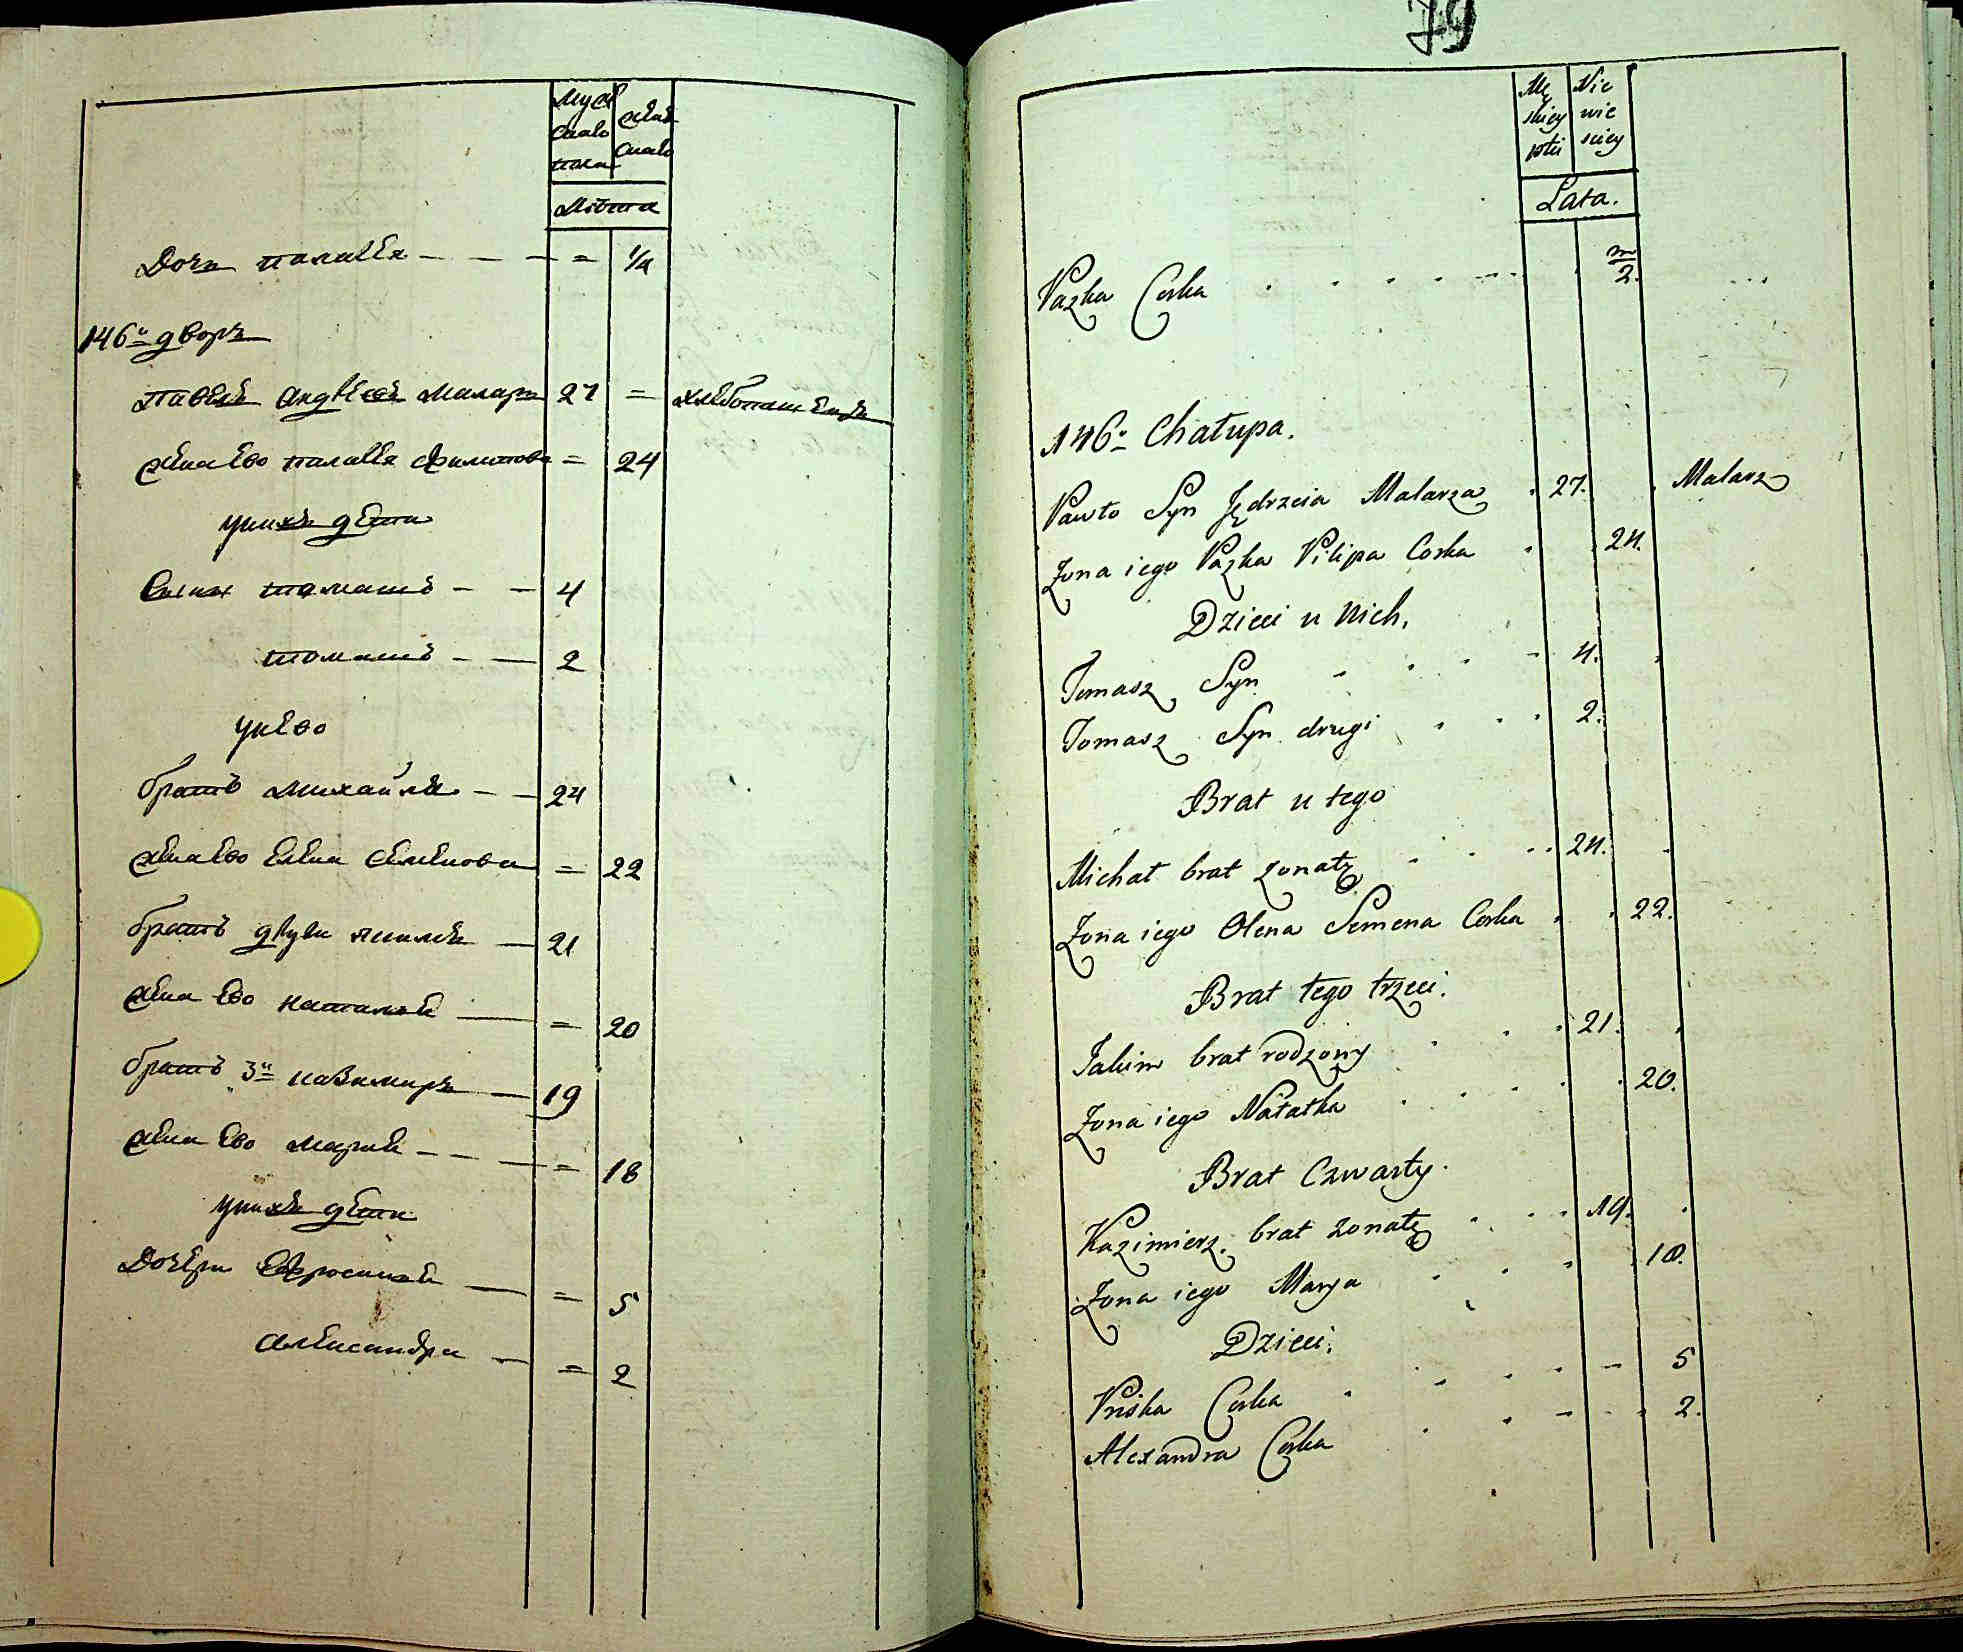 муж
скаго
пола
жен
скаго
лѣта
Дочь палагея — — — = 1/4
146й дворъ
павелъ андреевъ маляръ 27 = хлебопашецъ
жена ево палагея филипова = 24
у нихъ дети
Сынъ томашъ — — 4
томашъ — — 2
у нево
братъ михайла — — 24
жена ево елена семенова = 22
братъ другй якимъ — 21
жена ево наталья — = 20
братъ 3й казимиръ — 19
жена ево марья — — — = 18
у нихъ дети
Дочери ефросинья — = 5
александра — = 2
79
Mę
skiey
płci
Nie
wie
sciey
Lata.
Pazka Corka m/2.
146a Chałupa.
Pawło Syn Jędrzeia Malarza 27. Malarz
Zona iego Pazka Pilipa Corka 24.
Dzieci u nich.
Tomasz Syn 4.
Tomasz Syn drugi 2.
Brat u tego
Michał brat zonaty 24.
Zona iego Olena Semena Corka 22.
Brat tego trzeci.
Jakim brat rodzony 21.
Zona iego Natałka 20.
Brat Czwarty.
Kazimierz brat zonaty 19.
Zona iego Marya 18.
Dzieci.
Priska Corka 5
Alexandra Corka 2.